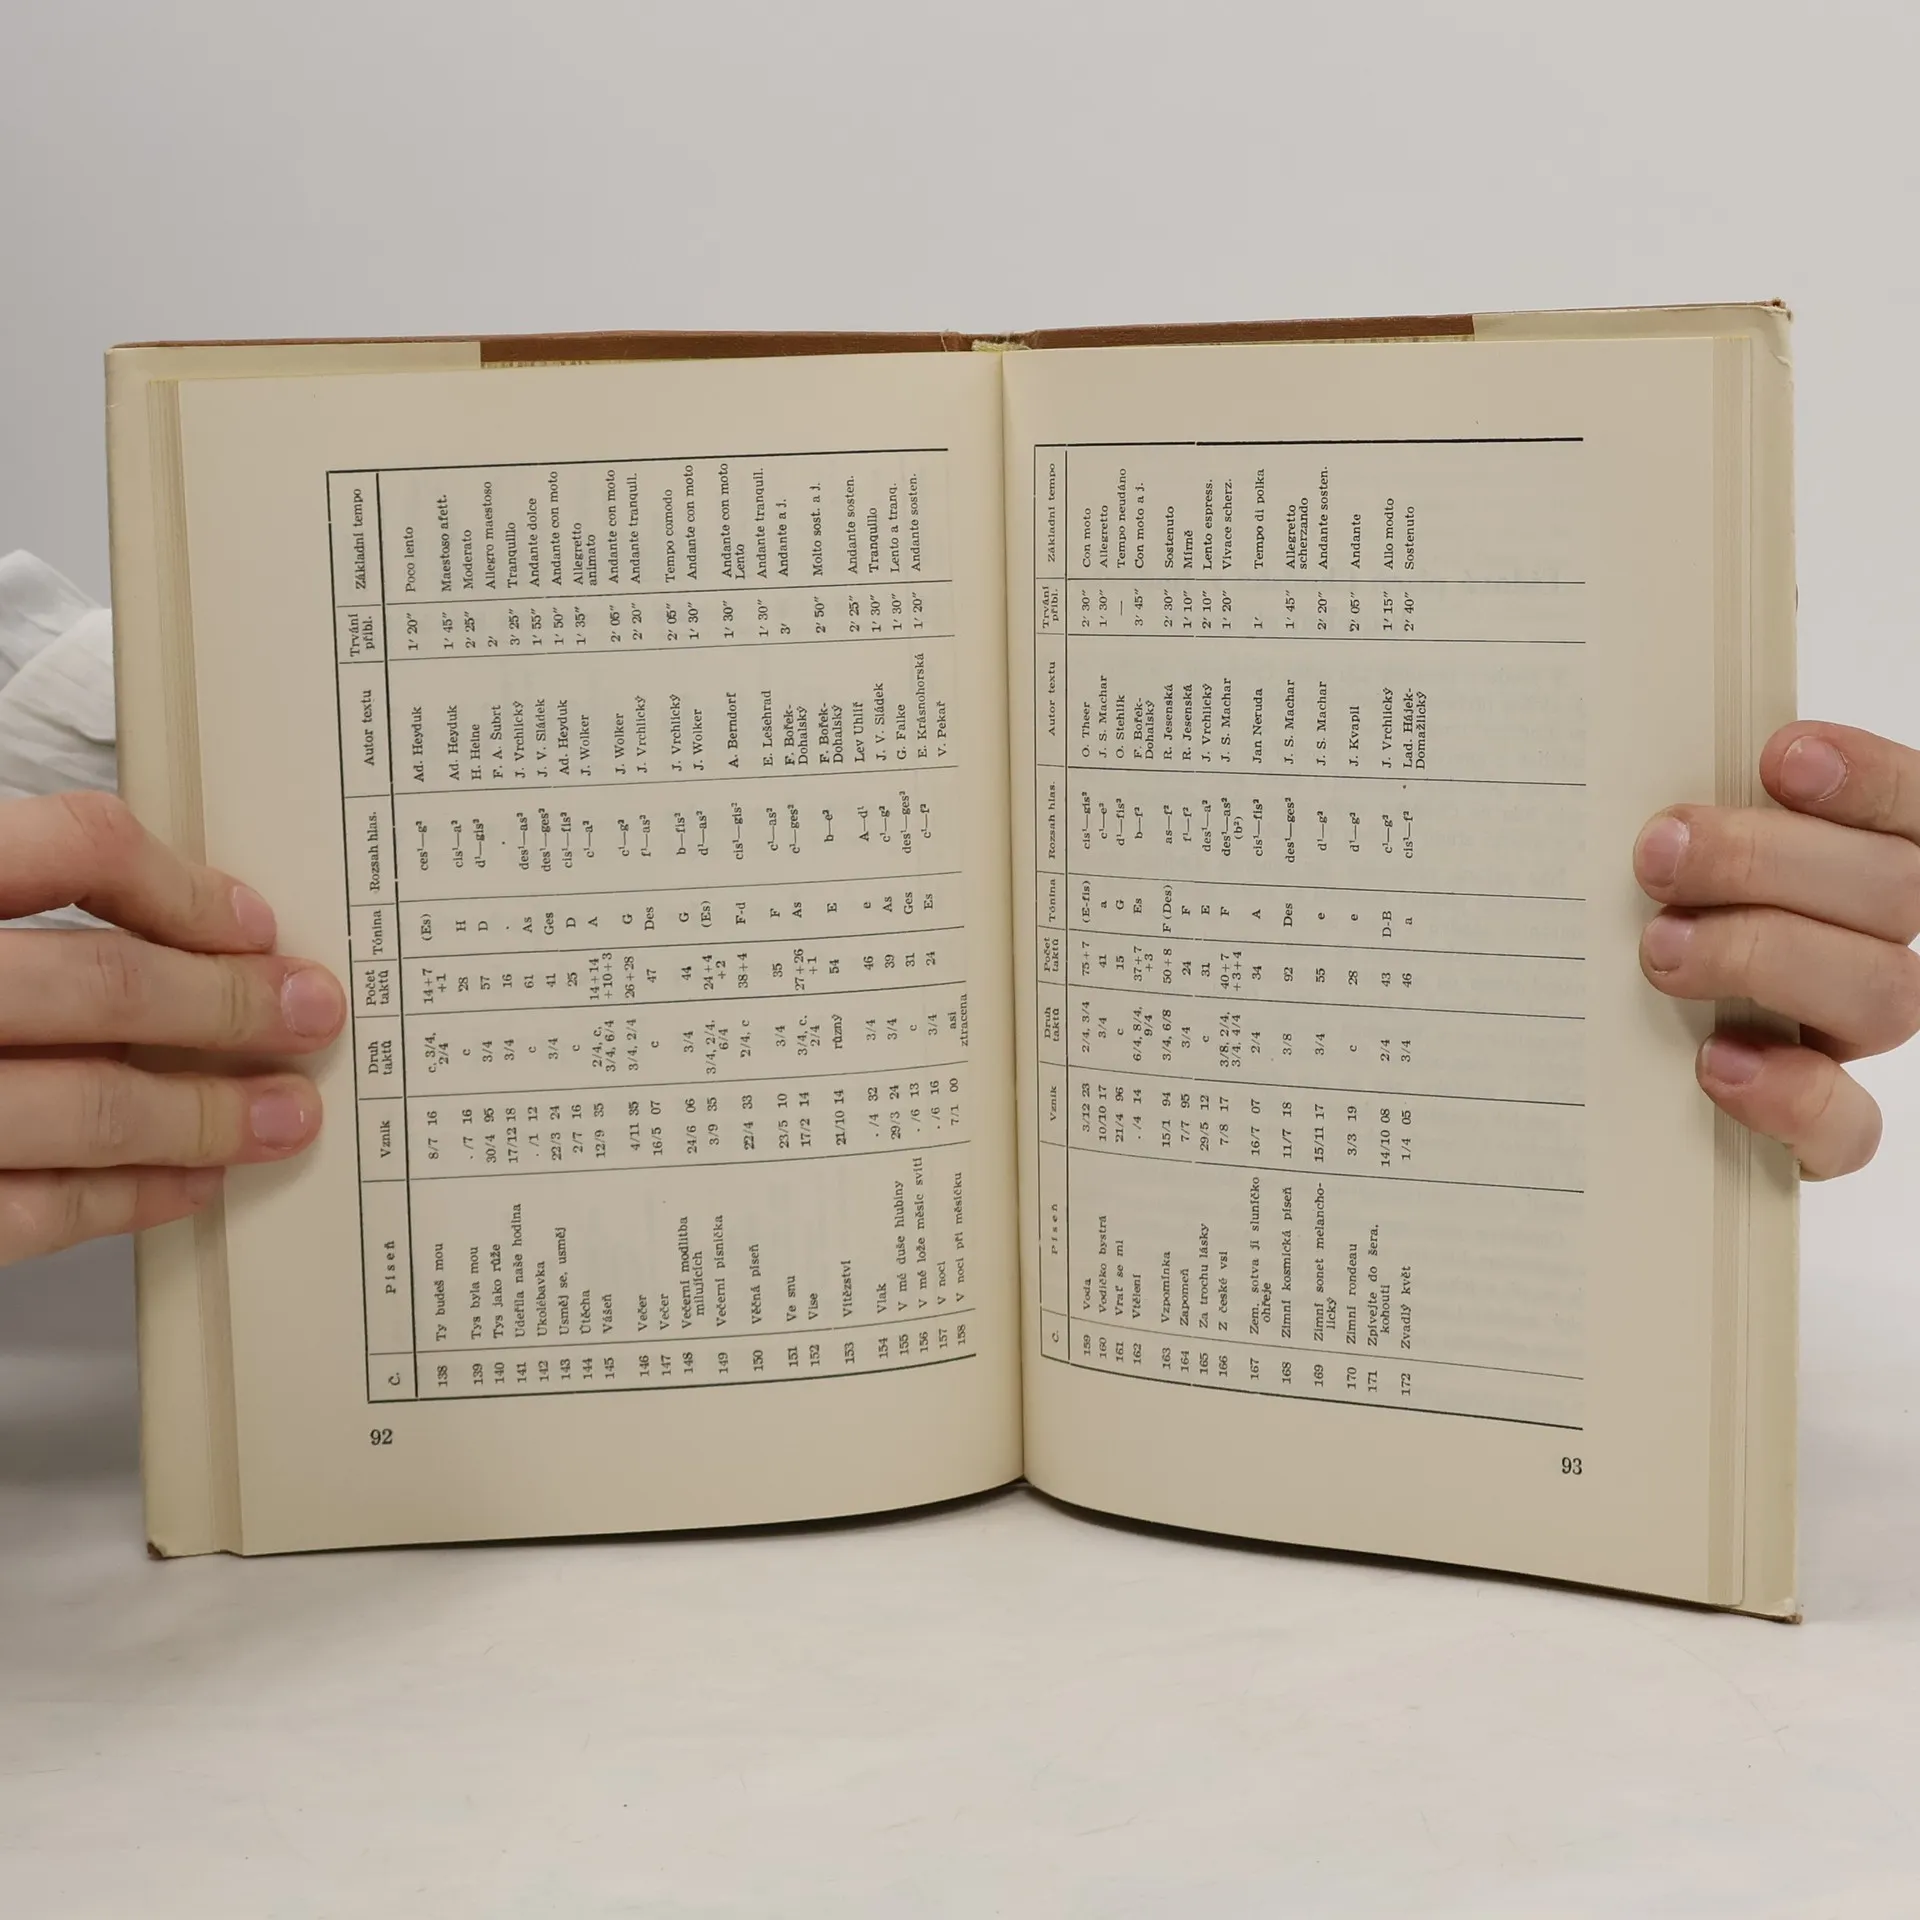 92
Č. Píseň Vznik Druh taktů Počet taktů Tónina Rozsah hlas. Autor textu Trvání přibl. Základní tempo
138 Ty budeš mou 8/7 16 c, 3/4, 2/4 14+7 +1 (Es) ces¹—g² Ad. Heyduk 1′ 20″ Poco lento
139 Tys byla mou . /7 16 c 28 H cis¹—a² Ad. Heyduk 1′ 45″ Maestoso afett.
140 Tys jako růže 30/4 95 3/4 57 D d¹—gis² H. Heine 2′ 25″ Moderato
141 Udeřila naše hodina 17/12 18 3/4 16 . . F. A. Šubrt 2′ Allegro maestoso
142 Ukolébavka . /1 12 c 61 As des¹—as² J. Vrchlický 3′ 25″ Tranquillo
143 Usměj se, usměj 22/3 24 3/4 41 Ges des¹—ges² J. V. Sládek 1′ 55″ Andante dolce
144 Útěcha 2/7 16 c 25 D cis¹—fis² Ad. Heyduk 1′ 50″ Andante con moto
145 Vášeň 12/9 35 2/4, c, 3/4, 6/4 14+14 +10+3 A c¹—a² J. Wolker 1′ 35″ Allegretto animato
146 Večer 4/11 35 3/4, 2/4 26+28 G c¹—g² J. Wolker 2′ 05″ Andante con moto
147 Večer 16/5 07 c 47 Des f¹—as² J. Vrchlický 2′ 20″ Andante tranquil.
148 Večerní modlitba milujících 24/6 06 3/4 44 G b—fis² J. Vrchlický 2′ 05″ Tempo comodo
149 Večerní písnička 3/9 35 3/4, 2/4, 6/4 24+4 +2 (Es) d¹—as² J. Wolker 1′ 30″ Andante con moto
150 Věčná píseň 22/4 33 2/4, c 38+4 F-d cis¹—gis² A. Berndorf 1′ 30″ Andante con moto Lento
151 Ve snu 23/5 10 3/4 35 F c¹—as² E. Lešehrad 1′ 30″ Andante tranquil.
152 Vise 17/2 14 3/4, c. 2/4 27+26 +1 As c¹—ges² F. Bořek-Dohalský 3′ Andante a j.
153 Vítězství 21/10 14 různý 54 E b—e² F. Bořek-Dohalský 2′ 50″ Molto sost. a j.
154 Vlak . /4 32 3/4 46 e A—d¹ Lev Uhlíř 2′ 25″ Andante sosten.
155 V mé duše hlubiny 29/3 24 3/4 39 As c¹—g² J. V. Sládek 1′ 30″ Tranquillo
156 V mé lože měsíc svítí . /6 13 c 31 Ges des¹—ges² G. Falke 1′ 30″ Lento a tranq.
157 V noci . /6 16 3/4 24 Es c¹—f² E. Krásnohorská 1′ 20″ Andante sosten.
158 V noci při měsíčku 7/1 00 asi ztracena V. Pekař
Č. Píseň Vznik Druh taktů Počet taktů Tónina Rozsah hlas. Autor textu Trvání přibl. Základní tempo
159 Voda 3/12 23 2/4, 3/4 75+7 (E-fis) cis¹—gis² O. Theer 2′ 30″ Con moto
160 Vodičko bystrá 10/10 17 3/4 41 a c¹—e² J. S. Machar 1′ 30″ Allegretto
161 Vrať se mi 21/4 96 c 15 G d¹—fis² O. Stehlík — Tempo neudáno
162 Vtělení . /4 14 6/4, 8/4, 9/4 37+7 +3 Es b—f² F. Bořek-Dohalský 3′ 45″ Con moto a j.
163 Vzpomínka 15/1 94 3/4, 6/8 50+8 F (Des) as—f² R. Jesenská 2′ 30″ Sostenuto
164 Zapomeň 7/7 95 3/4 24 F f¹—f² R. Jesenská 1′ 10″ Mírně
165 Za trochu lásky 29/5 12 c 31 E des¹—a² J. Vrchlický 2′ 10″ Lento espress.
166 Z české vsi 7/8 17 3/8, 2/4, 3/4, 4/4 40+7 +3+4 F des¹—as² (b²) J. S. Machar 1′ 20″ Vivace scherz.
167 Zem, sotva jí sluníčko ohřeje 16/7 07 2/4 34 A cis¹—fis² Jan Neruda 1′ Tempo di polka
168 Zimní kosmická píseň 11/7 18 3/8 92 Des des¹—ges² J. S. Machar 1′ 45″ Allegretto scherzando
169 Zimní sonet melancholický 15/11 17 3/4 55 e d¹—g² J. S. Machar 2′ 20″ Andante sosten.
170 Zimní rondeau 3/3 19 c 28 e d¹—g² J. Kvapil 2′ 05″ Andante
171 Zpívejte do šera, kohouti 14/10 08 2/4 43 D-B c¹—g² J. Vrchlický 1′ 15″ Allo modto
172 Zvadlý květ 1/4 05 3/4 46 a cis¹—f² Lad. Hájek-Domažlický 2′ 40″ Sostenuto
93